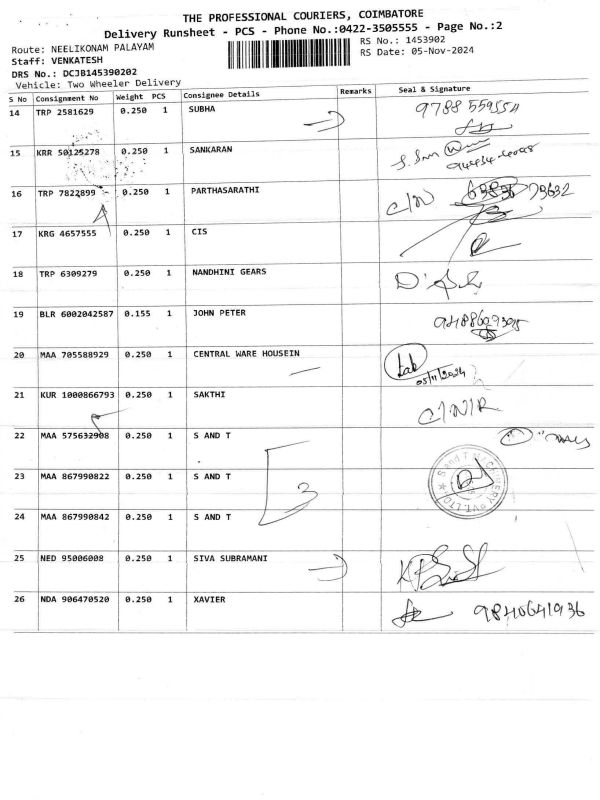 THE PROFESSIONAL COURIERS, COIMBATORE
Delivery Runsheet - PCS - Phone No.:0422-3505555 - Page No.:2
Route: NEELIKONAM PALAYAM
RS No.: 1453902
Staff: VENKATESH
RS Date: 05-Nov-2024
DRS No.: DCJB145390202
Vehicle: Two Wheeler Delivery
S No Consignment No Weight PCS Consignee Details Remarks Seal & Signature
14 TRP 2581629 0.250 1 SUBHA
15 KRR 50125278 0.250 1 SANKARAN
16 TRP 7822899 0.250 1 PARTHASARATHI
17 KRG 4657555 0.250 1 CIS
18 TRP 6309279 0.250 1 NANDHINI GEARS
19 BLR 6002042587 0.155 1 JOHN PETER
20 MAA 705588929 0.250 1 CENTRAL WARE HOUSEIN
05/11/2024
21 KUR 1000866793 0.250 1 SAKTHI
C/N/R
22 MAA 575632908 0.250 1 S AND T
23 MAA 867990822 0.250 1 S AND T 3
24 MAA 867990842 0.250 1 S AND T
25 NED 95006008 0.250 1 SIVA SUBRAMANI
26 NDA 906470520 0.250 1 XAVIER 9840641936